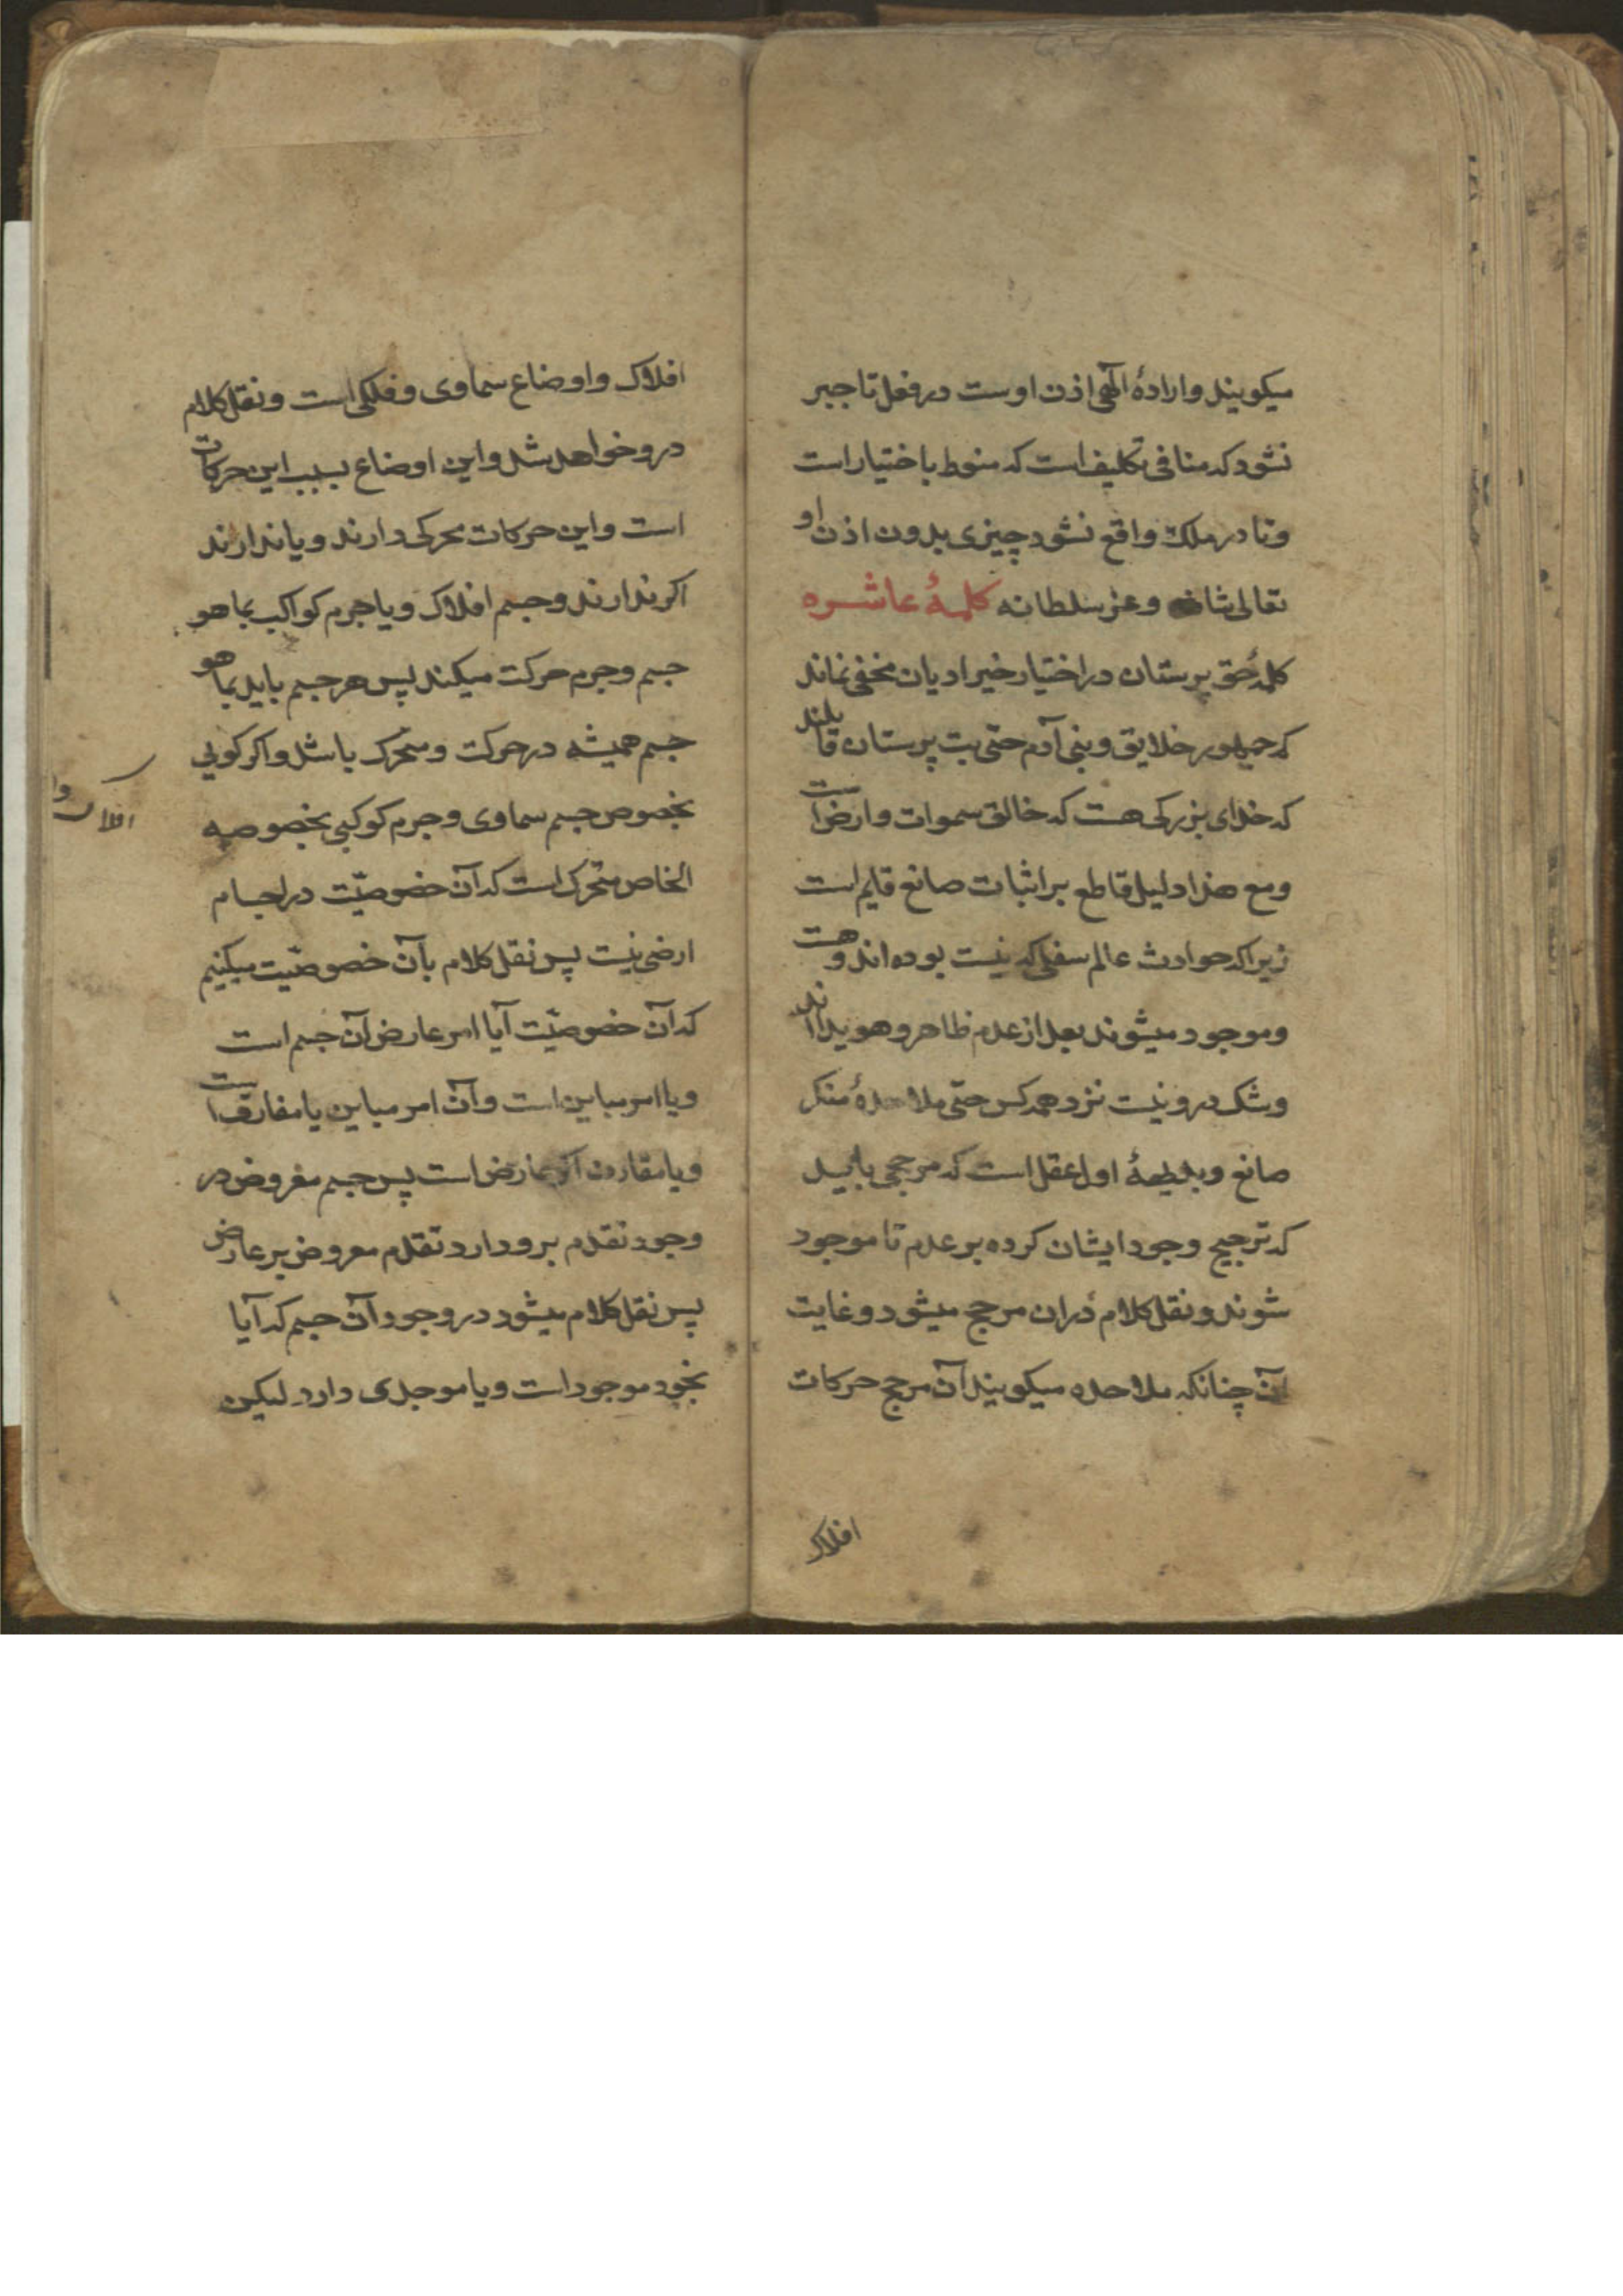 میکویند و ارادهٔ الهی اذن اوست در فعل تا جبر
نشود که منافی تکلیف است که منوط باختیار است
و تا در ملک واقع نشود چیزی بدون اذن او
تعالی شانه و عز سلطانه کلمهٔ عاشره
کلمهٔ حق پرستان در اختیار خیر ادیان مخفی نماند
که جمهور خلایق و بنی آدم حتی بت پرستان قایلند
که خدای بزرکی هست که خالق سموات و ارض است
و مع هذا دلیل قاطع بر اثبات صانع قایم است
زیرا که حوادث عالم سفلی که نیست بوده اند و هست
و موجود میشوند بعد از عدم ظاهر و هویدا اند
و شک درو نیست نزد همه کس حتی ملاحدهٔ منکر
صانع و بدیههٔ اول عقل است که مرجحی باید
که ترجیح وجود ایشان کرده بر عدم تا موجود
شوند و نقل کلام دران مرجح میشود و غایت
آن چنانکه ملاحده میکویند آن مرجح حرکات
افلاک
افلاک و اوضاع سماوی و فلکی است و نقل کلام
درو خواهد شد و این اوضاع بسبب این حرکات
است و این حرکات محرکی دارند و یا ندارند
اکر ندارند و جسم افلاک و یا جرم کواکب بما هو
جسم و جرم حرکت میکند پس هر جسم باید بما هو
جسم همیشه در حرکت و متحرک باشد و اکر کویی
بخصوص جسم سماوی و جرم کوکبی بخصوصه
الخاص متحرک است که آن خصوصیّت در اجسام
ارضی نیست پس نقل کلام بآن خصوصیّت میکنیم
که آن خصوصیّت آیا امر عارض آن جسم است
و یا امر مباین است و آن امر مباین یا مفارق است
و یا مقارن اکر عارض است پس جسم معروض در
وجود تقدم برو دارد تقدم معروض بر عارض
پس نقل کلام میشود در وجود آن جسم که آیا
بخود موجود است و یا موجدی دارد لیکن
افلاک و